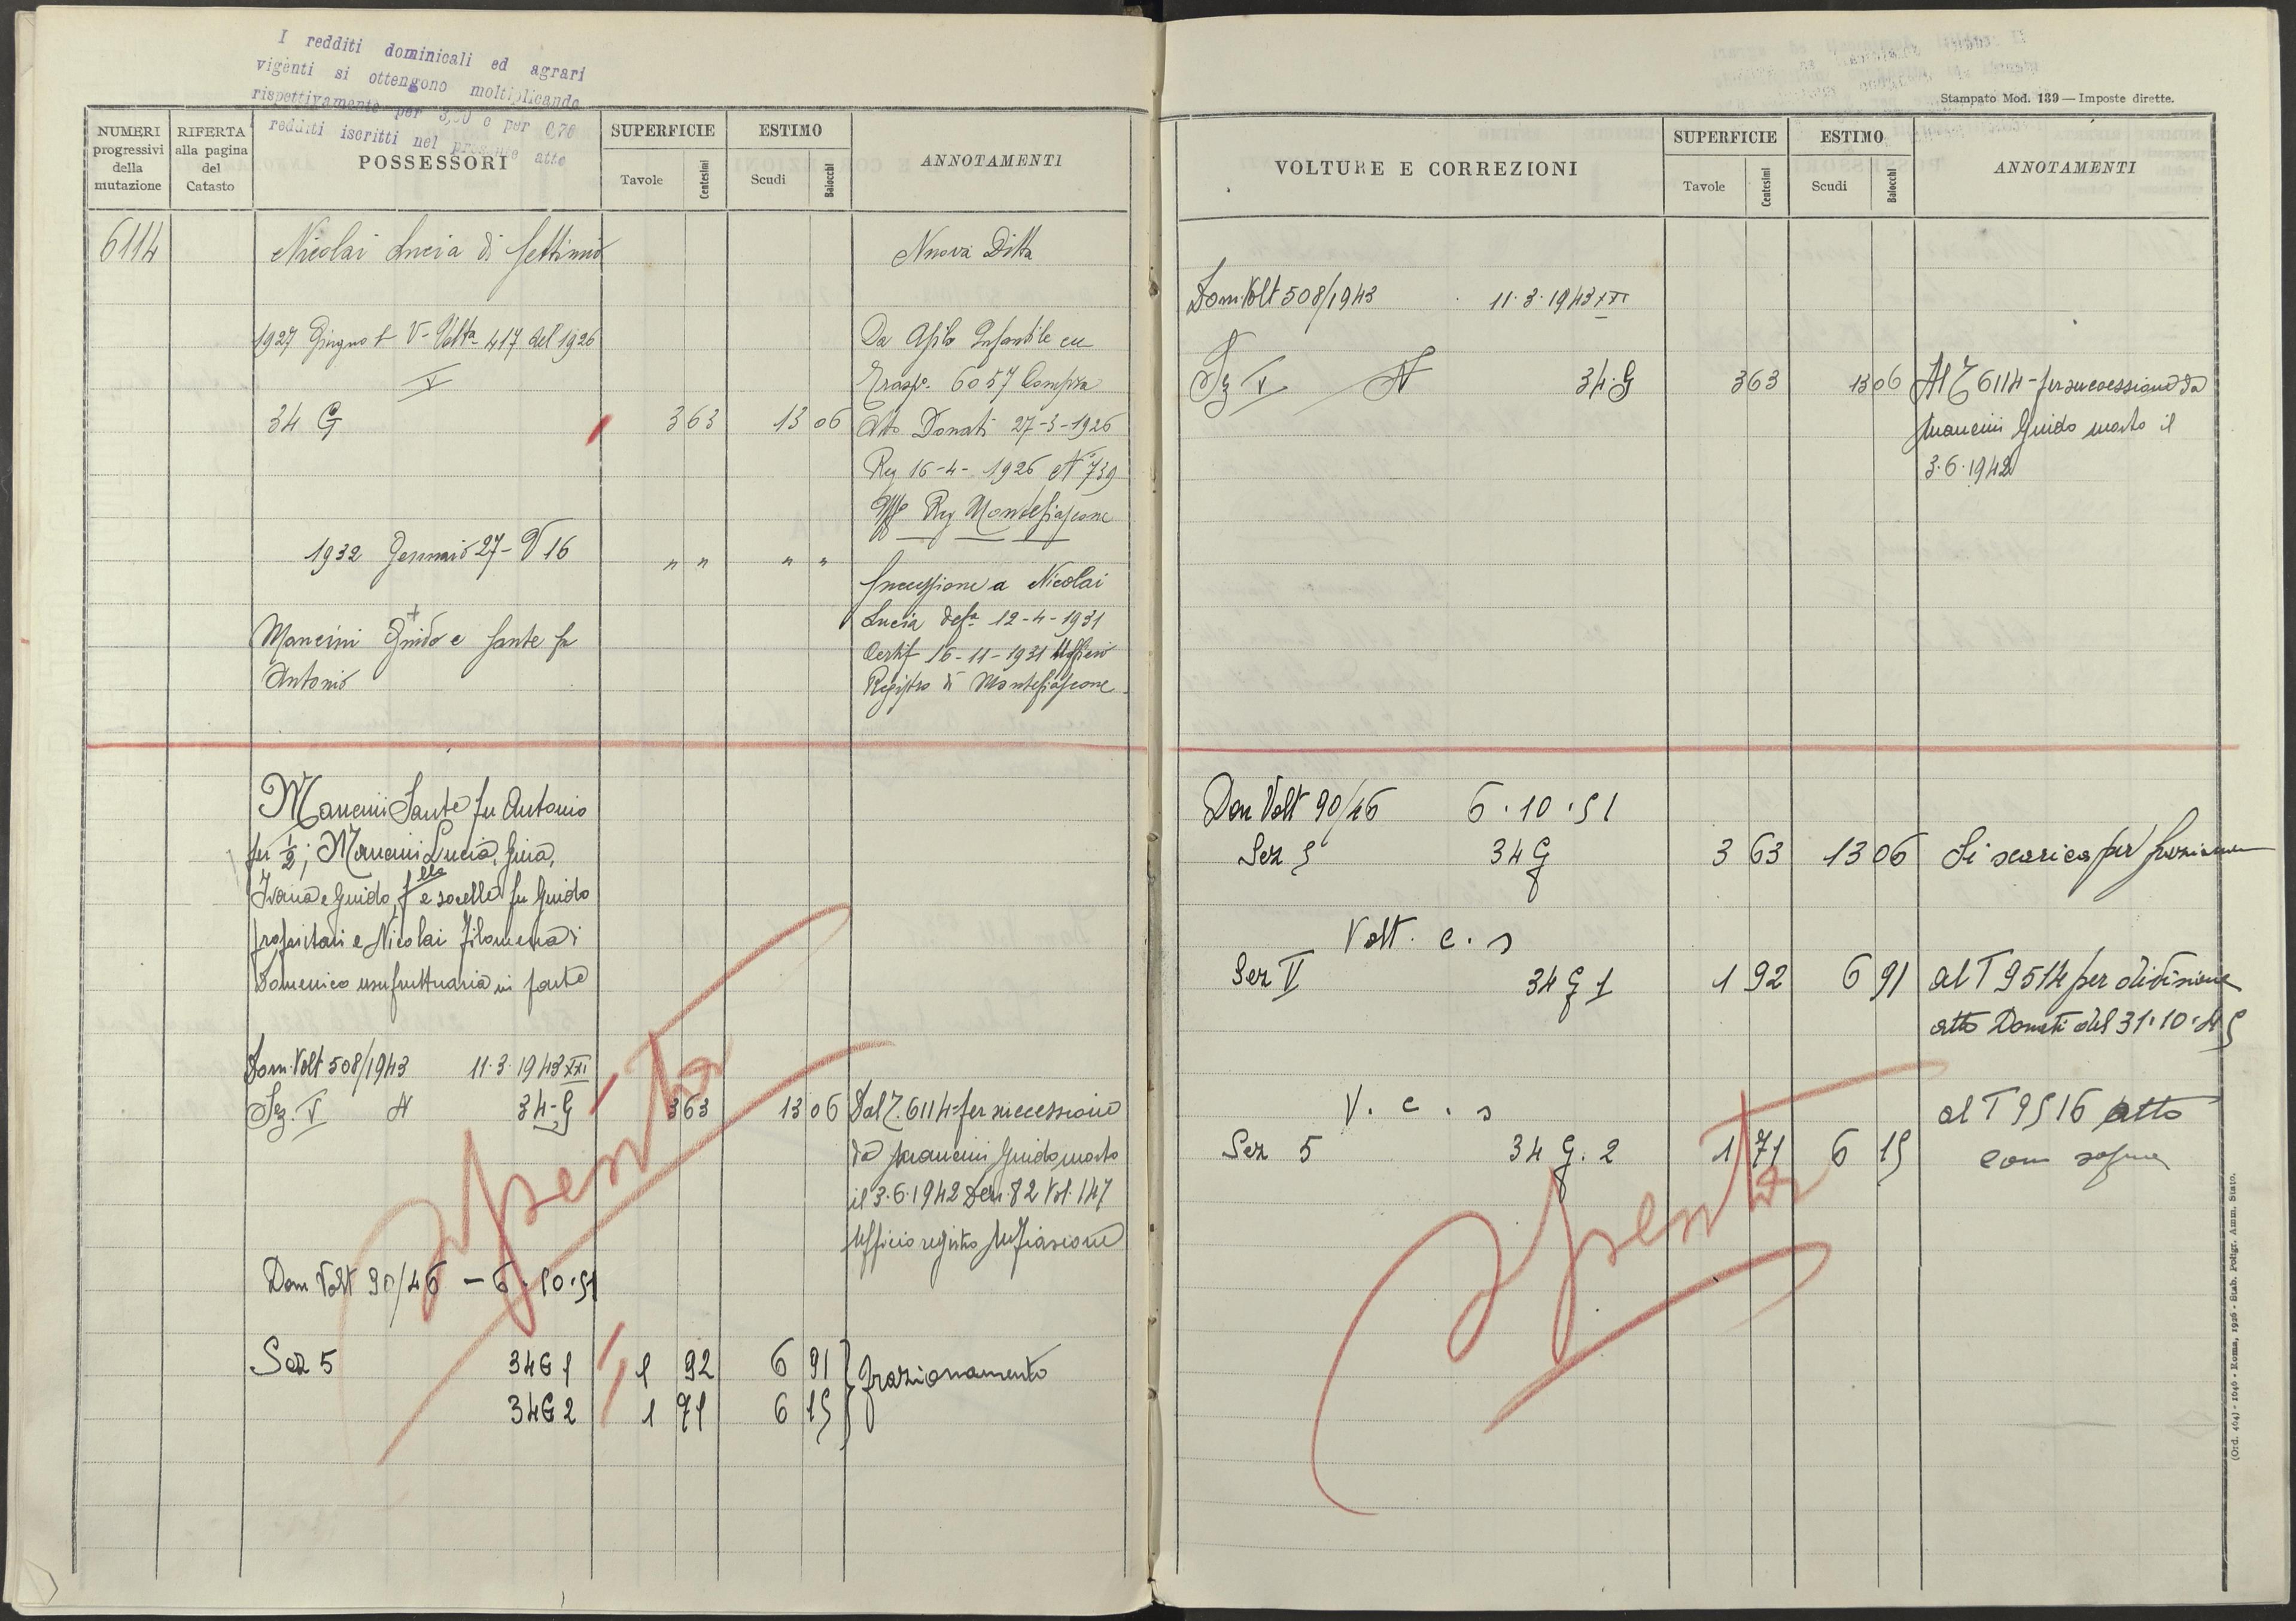 I redditi dominicali ed agrari
vigenti si ottengono moltiplicando
rispettivamente per 3,50 e per 0,70
redditi iscritti nel presente atto
NUMERI progressivi della mutazione
RIFERTA alla pagina del Catasto
POSSESSORI
SUPERFICIE
Tavole
Centesimi
ESTIMO
Scudi
Baiocchi
ANNOTAMENTI
6114
Nicolai Lucia di Settimio
Nuova Ditta
1927 Giugno V - Volta 417 del 1926
V
34 G 3 63 13 06
Da Asilo Infantile
Trasp. 6057 Compra
Atto Donati 27-3-1926
Reg 16-4-1926 N° 739
Uffo Reg Montefiascone
1932 Gennaio 27 - V 16 " " " "
Successione a Nicolai
Lucia defta 12-4-1931
Certif 16-11-1931 Ufficio
Registro di Montefiascone
Mancini Guido + e Sante fu
Antonio
Mancini Sante fu Antonio
per 1/2; Mancini Lucia, Gina,
Ivana e Guido, flla e sorelle fu Guido
propritari e Nicolai Filomena di
Domenico usufruttuaria in parte
Dom. Volt 508/1943 11.3.1943 XXI
Sez. V N 34-G 363 13 06
Dal T. 6114 - per successione
da Mancini Guido morto
il 3.6.1942 Den. 82 Vol. 147
Ufficio registro Mfiascone
Dom Volt 90/46 - 6.10.51
Sez 5 34 G 1 1 92 6 91
34 G 2 1 71 6 15
frazionamento
Spenta
Stampato Mod. 139 — Imposte dirette.
VOLTURE E CORREZIONI
SUPERFICIE
Tavole
Centesimi
ESTIMO
Scudi
Baiocchi
ANNOTAMENTI
Dom. Volt 508/1943 11.3.1943 XXI
Sz V N 34.G 363 13 06
Al T 6114 - per successione da
Mancini Guido morto il
3.6.1942
Dom Volt 90/46 6.10.51
Sez 5 34 G 3 63 13 06 Si scarica per
Volt. c. s
Sez V 34 G 1 1 92 6 91
al T 9514 per divisione
atto Donati del 31.10.45
V. c. s
Sez 5 34 G. 2 1 71 6 15
al T 9516 atto
come sopra
Spenta
(Ord. 464) - 1040 - Roma, 1926 - Stab. Poligr. Amm. Stato.